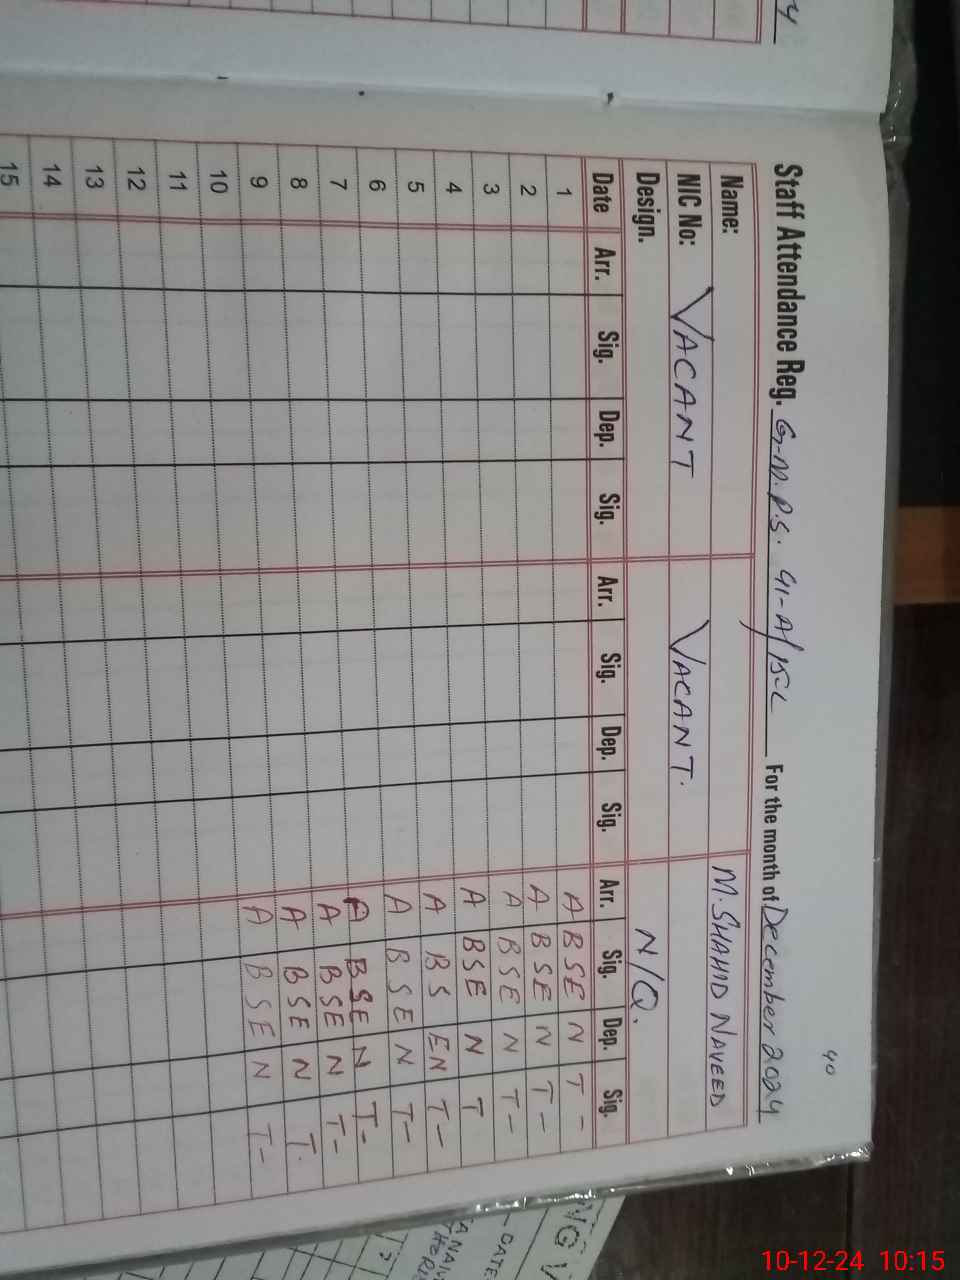 40
Staff Attendance Reg. G.M.P.S. 91-A/15-L For the month of December 2024
Name: M. SHAHID NAVEED
NIC No: VACANT VACANT.
Design. N/Q.
Date Arr. Sig. Dep. Sig. Arr. Sig. Dep. Sig. Arr. Sig. Dep. Sig.
1 ABSENT-
2 ABSENT-
3 ABSENT-
4 ABSENT
5 ABSENT-
6 ABSENT-
7 ABSENT-
8 ABSENT-
9 ABSENT.
10 ABSENT-
11
12
13
14
15
DATE
10-12-24 10:15